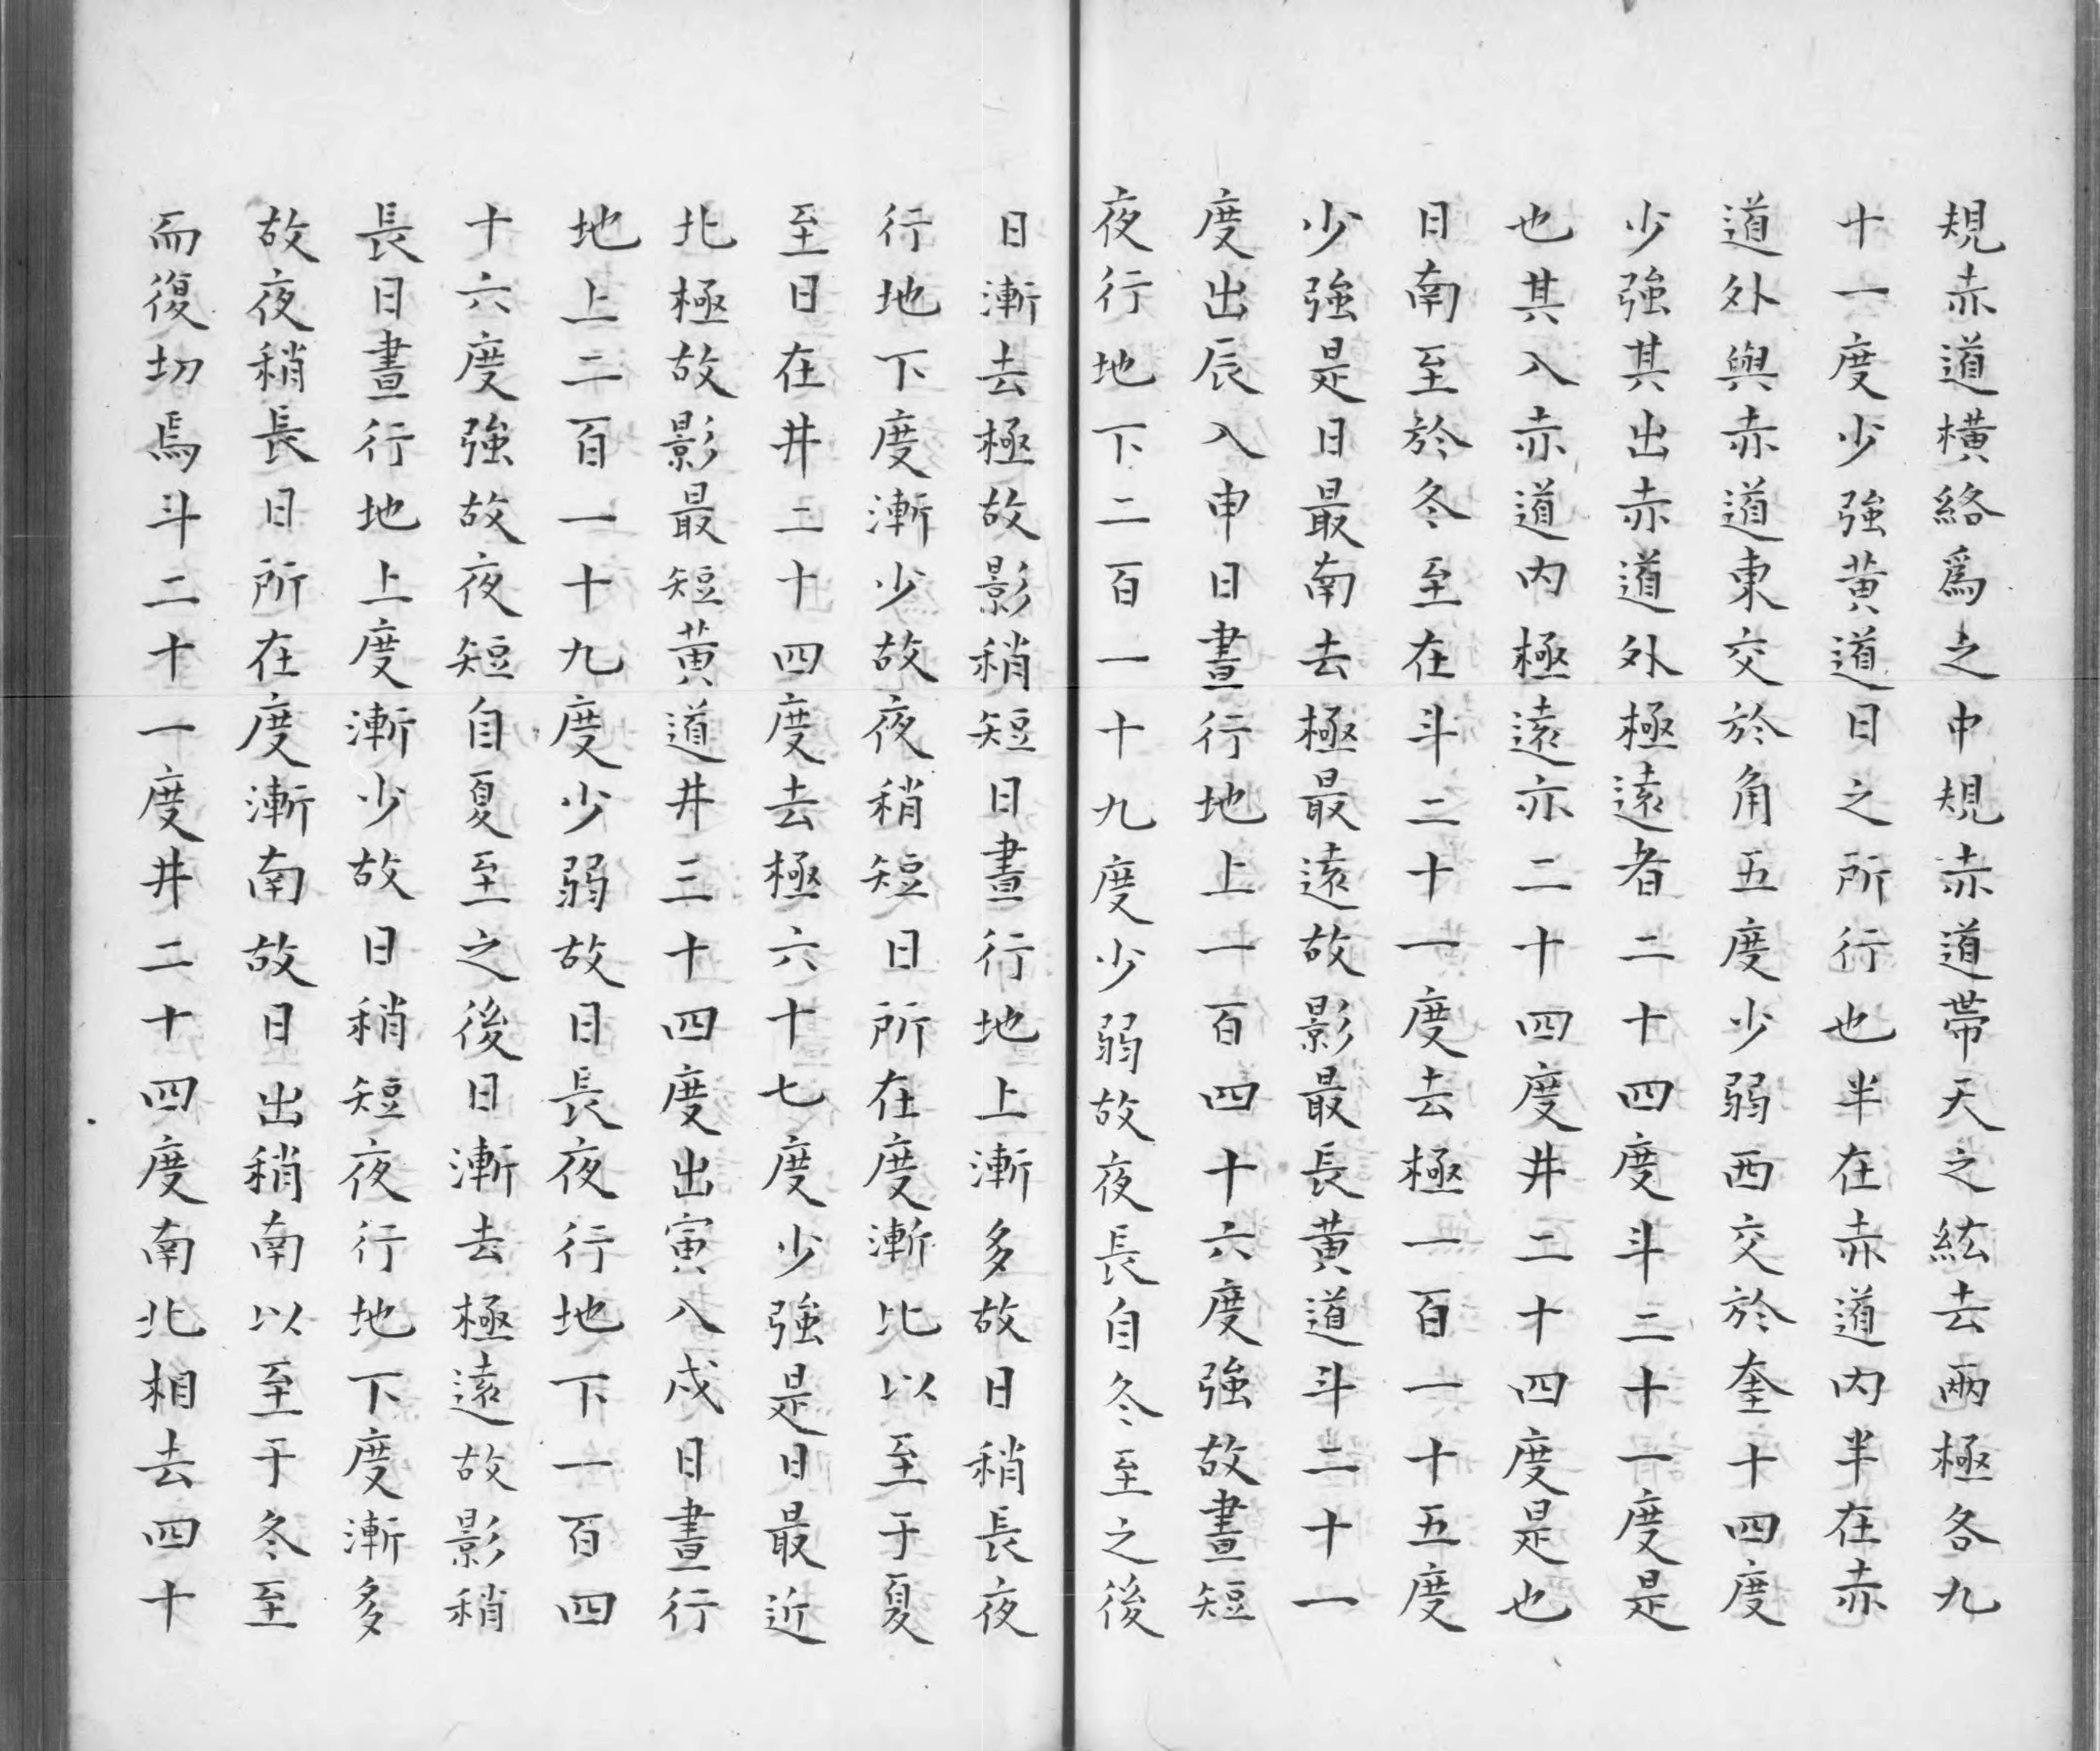 規赤道横絡爲之中規赤道帶天之紘去兩極各九
十一度少強黄道日之所行也半在赤道内半在赤
道外與赤道東交於角五度少弱西交於奎十四度
少強其出赤道外極遠者二十四度斗二十一度是
也其入赤道内極遠亦二十四度井二十四度是也
日南至於冬至在斗二十一度去極一百一十五度
少強是日最南去極最遠故影最長黄道斗二十一
度出辰入申日晝行地上一百四十六度強故晝短
夜行地下二百一十九度少弱故夜長自冬至之後
日漸去極故影稍短日晝行地上漸多故日稍長夜
行地下度漸少故夜稍短日所在度漸比以至于夏
至日在井二十四度去極六十七度少強是日最近
北極故影最短黄道井三十四度出寅入戍日晝行
地上二百一十九度少弱故日長夜行地下一百四
十六度強故夜短自夏至之後日漸去極遠故影稍
長日晝行地上度漸少故日稍短夜行地下度漸多
故夜稍長日所在度漸南故日出稍南以至于冬至
而復切焉斗二十一度井二十四度南北相去四十